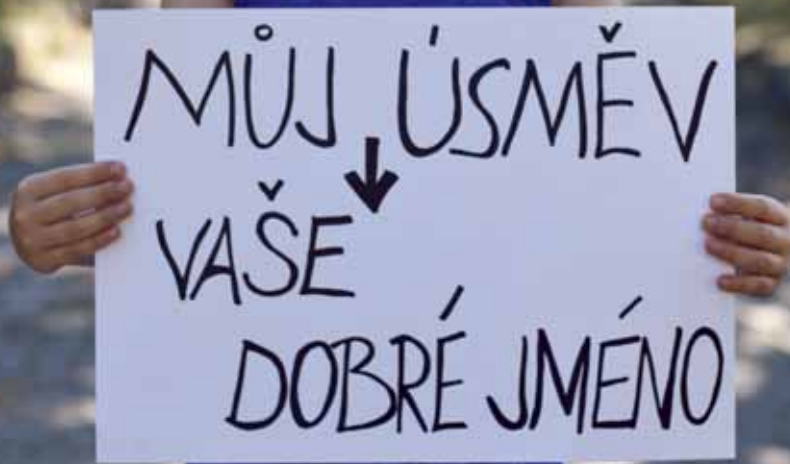 MŮJ ÚSMĚV
↓
VAŠE
DOBRÉ JMÉNO